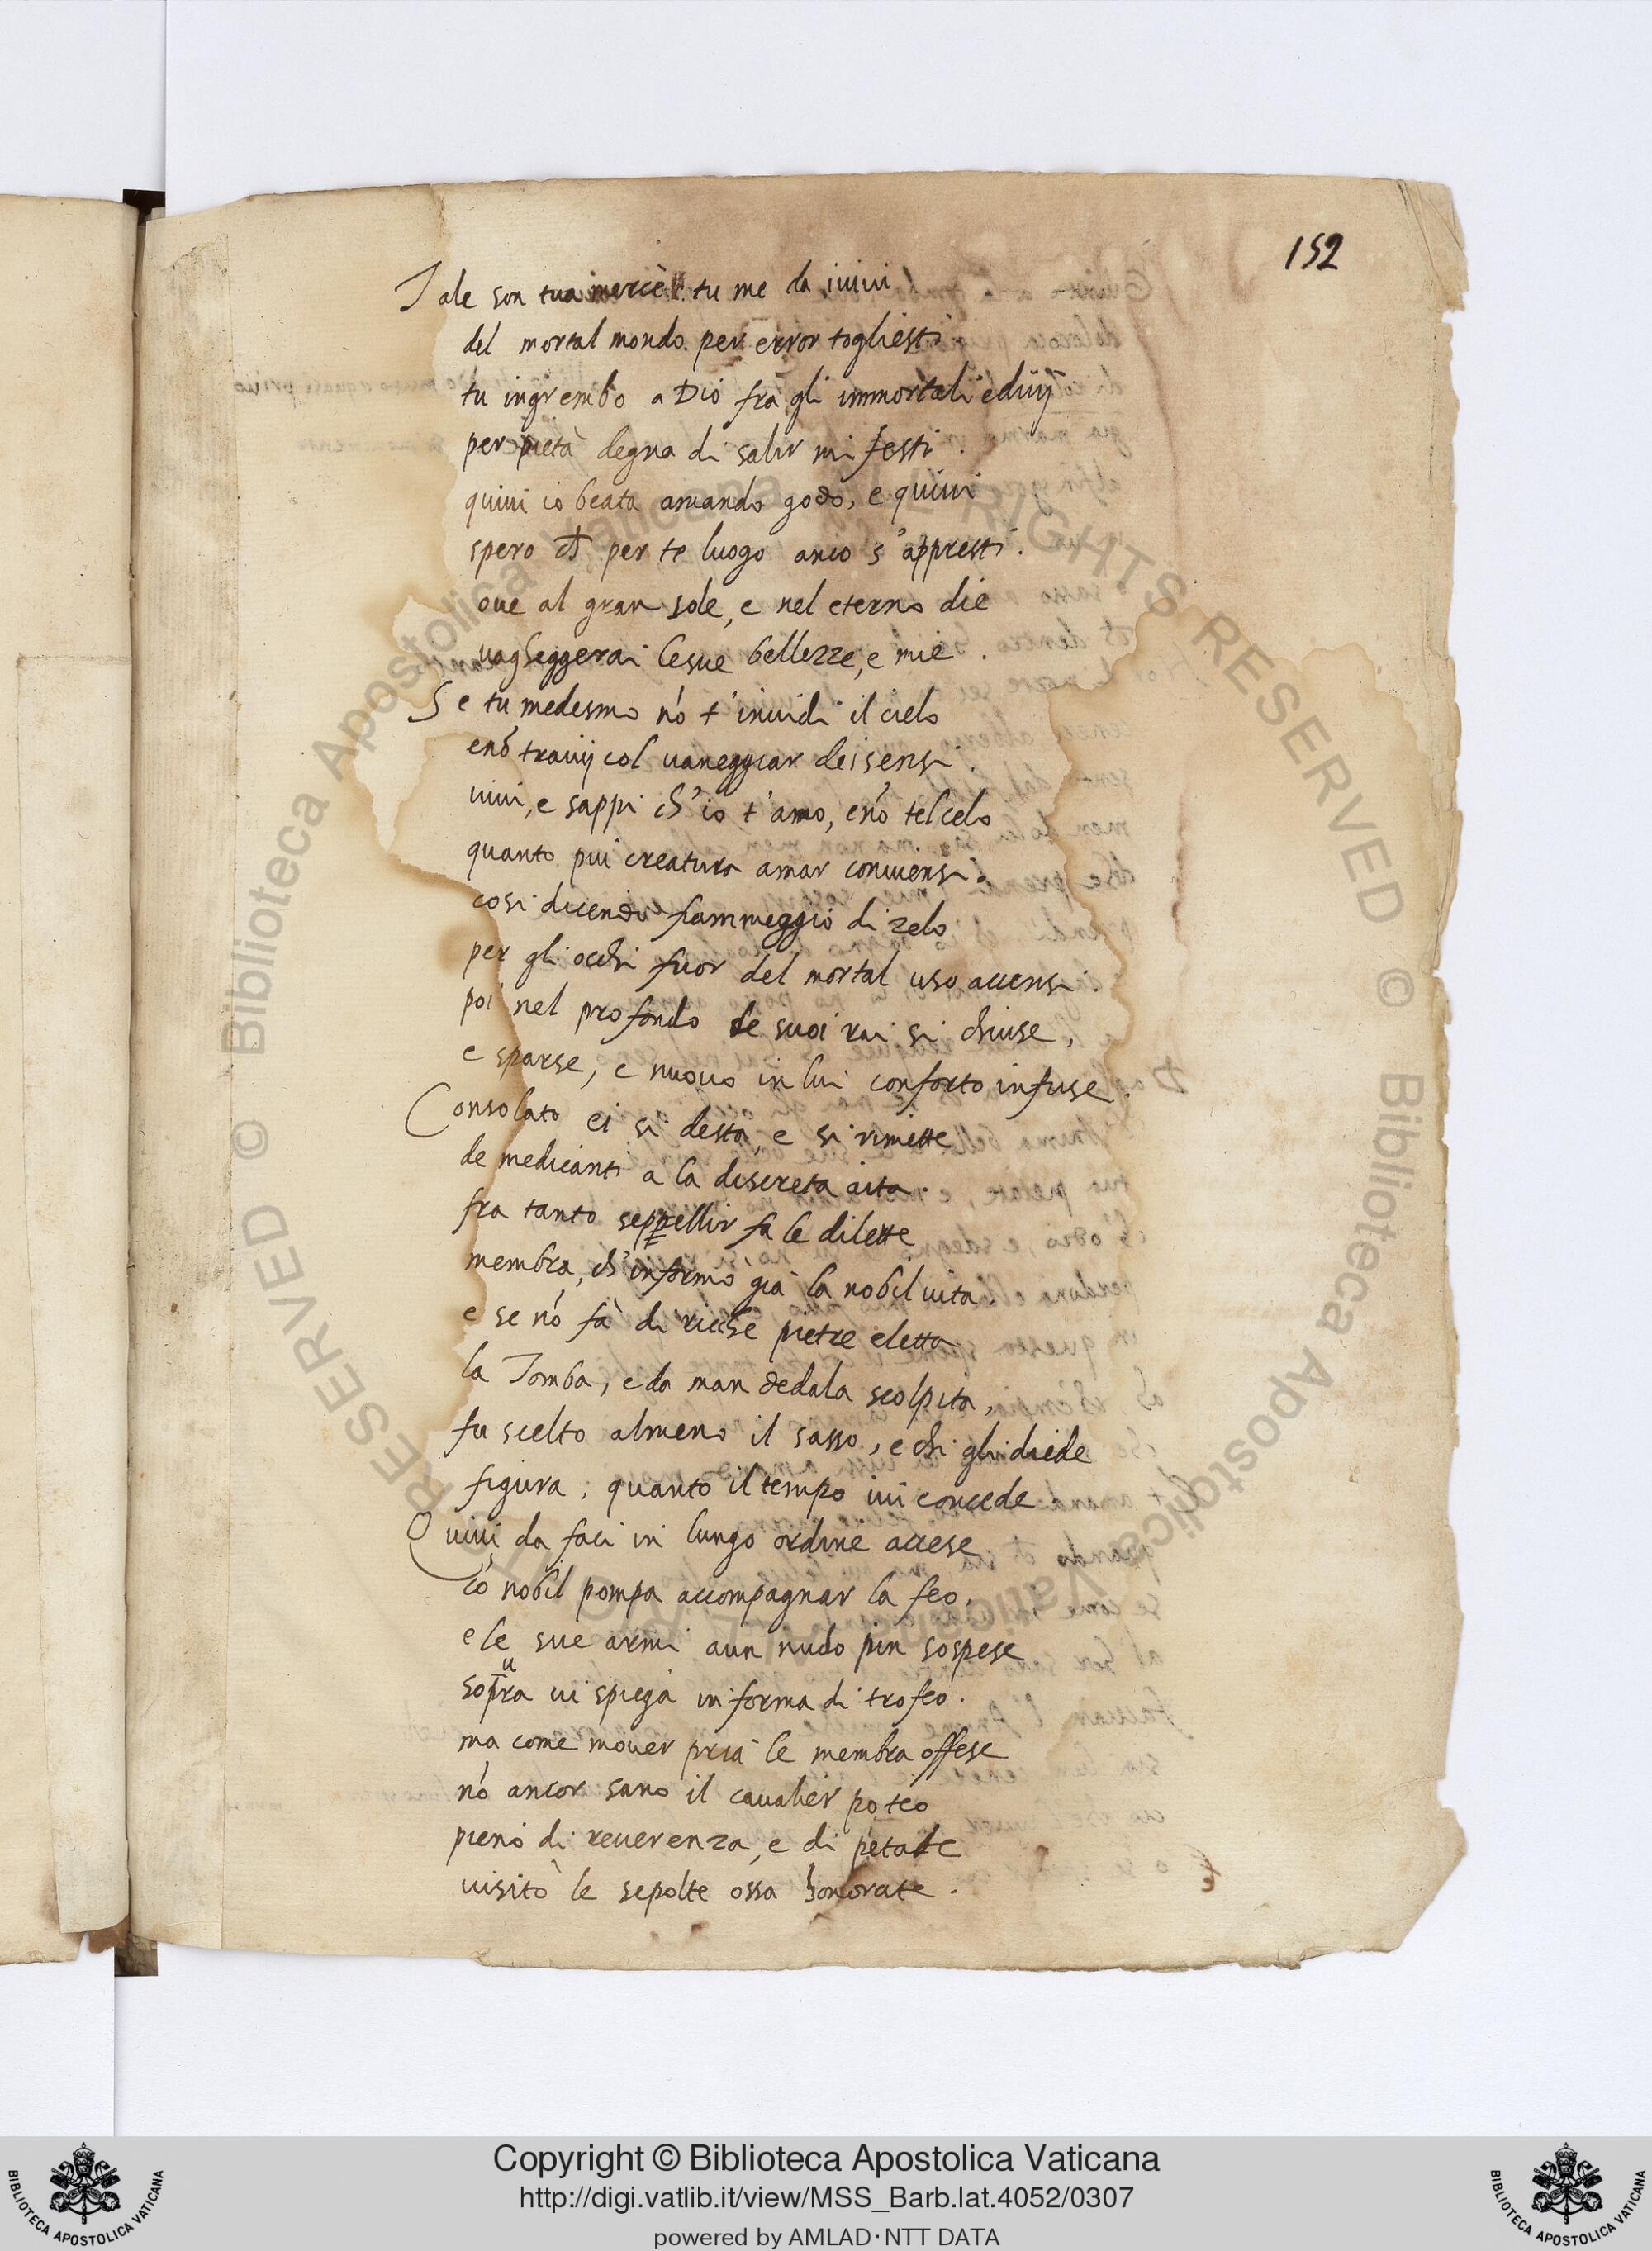 152
Tale son tua mercè: tu me da i uiui
del mortal mondo per error togliesti
tu in grembo a Dio fra gli immortali e diuij
per pietà degna di salir mi festi.
quiui io beata amando godo, e quiui
spero ch per te luogo anco s'appresti.
oue al gran sole, e nel eterno die
uagheggerai le sue bellezze, e mie.
Se tu medesmo nó t'inuidi il cielo
e nó trauij col uaneggiar dei sensi.
uiui, e sappi ch'io t'amo, e nó tel celo
quanto piu creatura amar conuiensi.
cosi dicendo fiammeggiò di zelo
per gli occhi fuor del mortal uso accensi.
poi nel profondo de suoi rai si chiuse,
e sparse, e nuouo in lui conforto infuse.
Consolato ei si desta, e si rimette
de medicanti a la discreta aita.
fra tanto seppellir fa le dilette
membra, ch'informò già la nobil uita.
e se nó fà di ricche pietre eletta
la Tomba, e da man dedala scolpita,
fu scelto almeno il sasso, e chi gli diede
figura, quanto il tempo iui concede.
Quiui da faci in lungo ordine accese
có nobil pompa accompagnar la feo.
e le sue armi a un nudo pin sospese
sopra ui spiegà in forma di trofeo.
ma come mouer pria le membra offese
nó ancor sano il caualier poteo
pieno di reuerenza, e di pietate
uisitò le sepolte ossa honorate.
Copyright © Biblioteca Apostolica Vaticana
http://digi.vatlib.it/view/MSS_Barb.lat.4052/0307
powered by AMLAD·NTT DATA
BIBLIOTECA APOSTOLICA VATICANA
BIBLIOTECA APOSTOLICA VATICANA
© Biblioteca Apostolica Vaticana ALL RIGHTS RESERVED